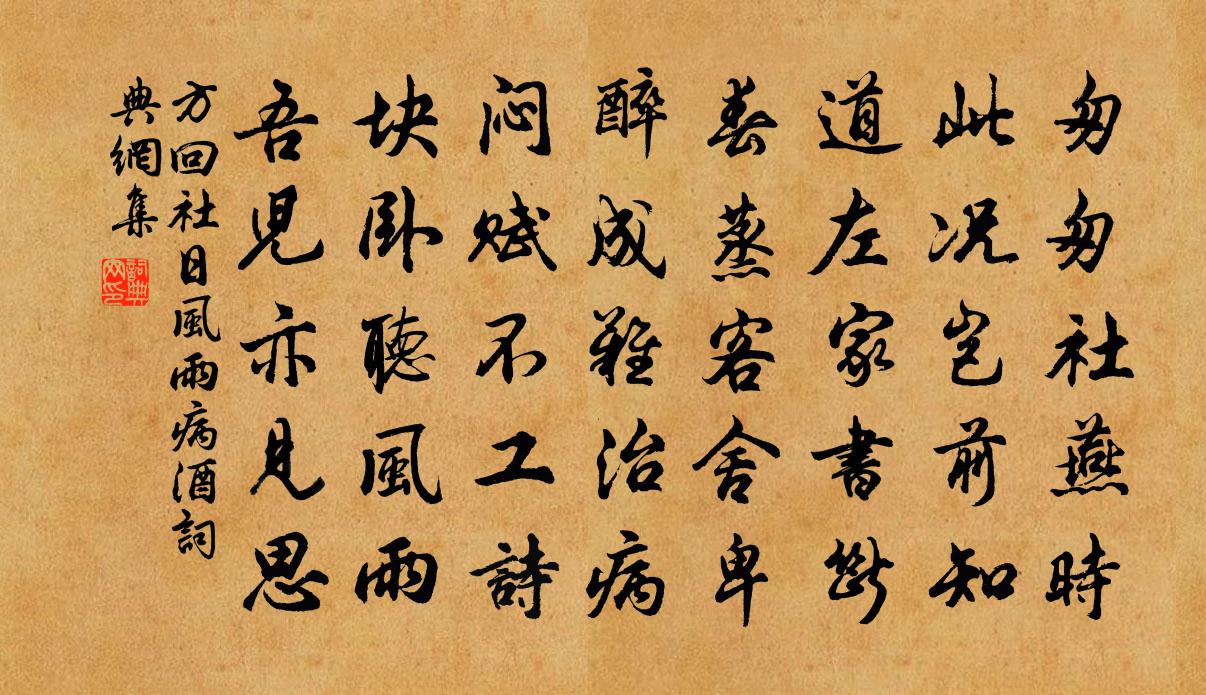 匆匆社燕時
此况豈前知
道左家書斷
春蒸客舍卑
醉成難治病
悶賦不工詩
块卧聽風雨
吾児亦見思
方回社日風雨病酒詞
典網集
詞典
网印